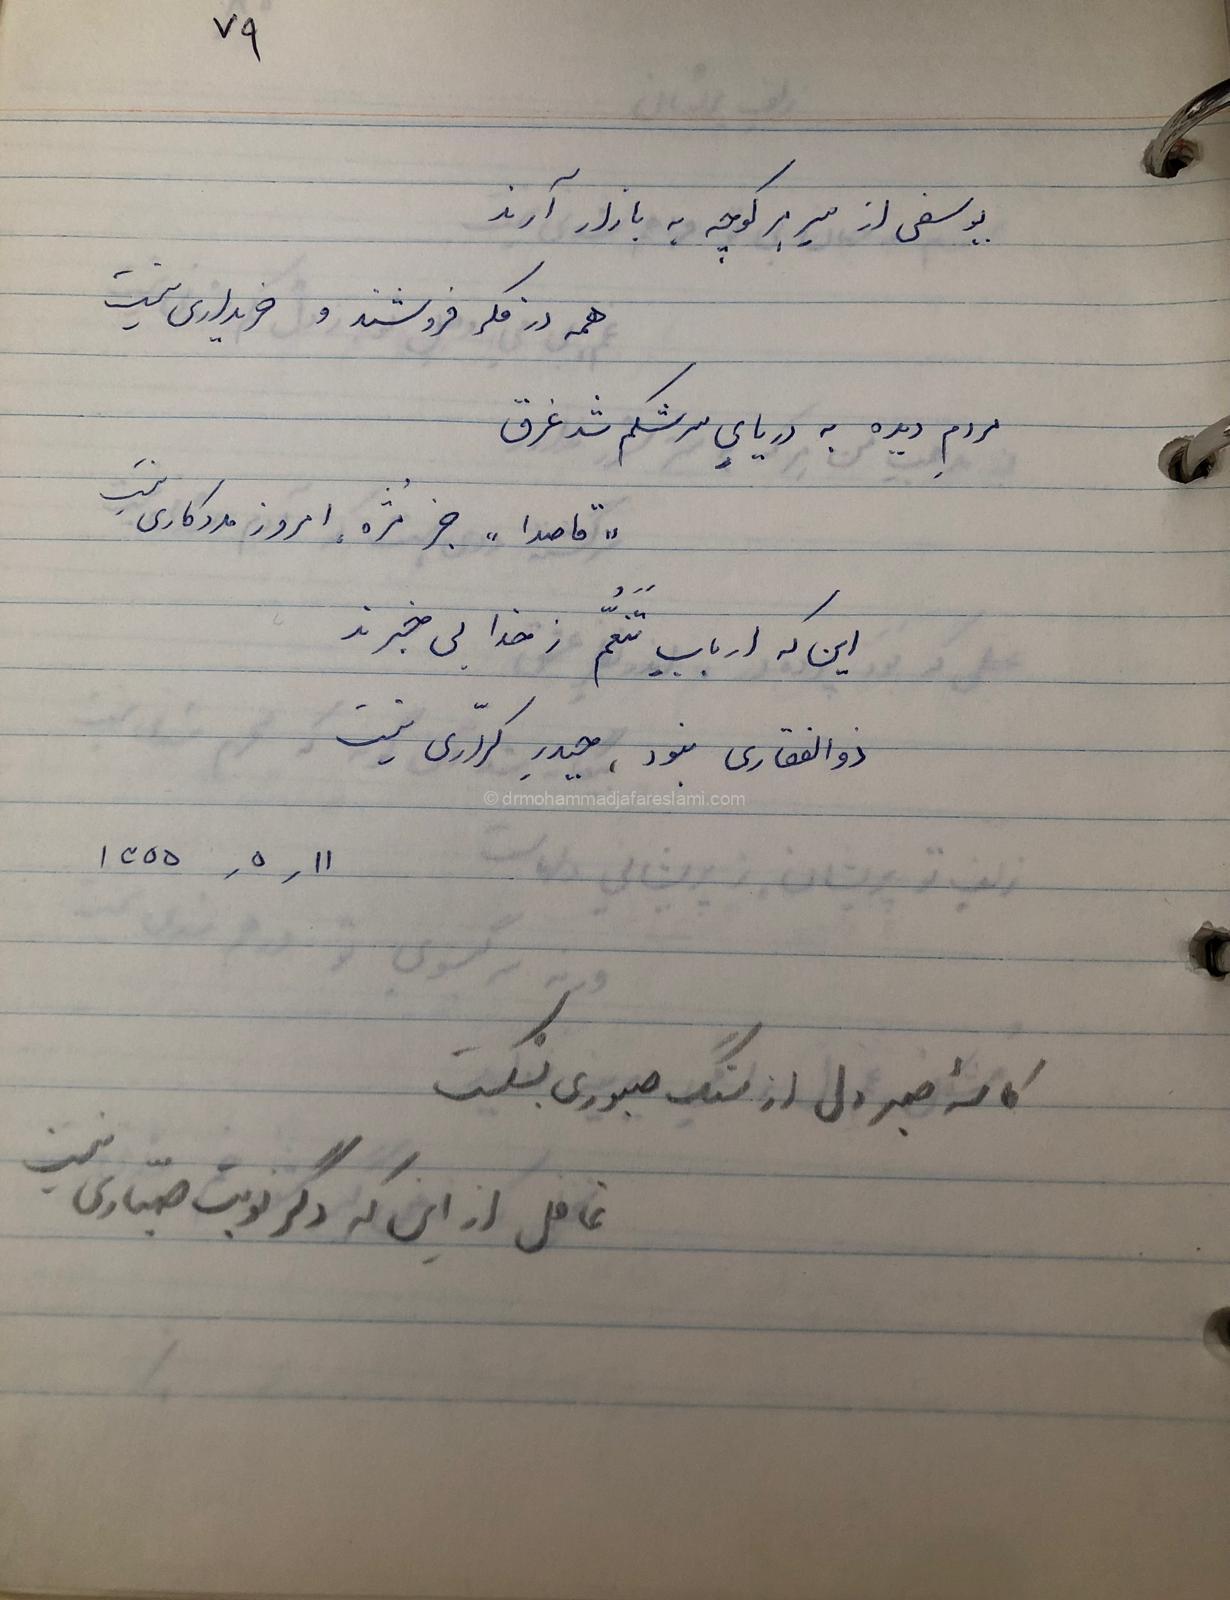 ۷۹
یوسفی از سرِ هر کوچه به بازار آرند
همه در فکر فروشند و خریداری نیست
مردمِ دیده به دریایِ سرشکم شد غرق
"قاصدا" جز مُژه، امروز مددکاری نیست
این که اربابِ تَنَعُّم ز خدا بی خبرند
ذوالفقاری نبود، حیدرِ کرّاری نیست
© drmohammadjafareslami.com
۱۱ر ۵ر ۱۳۵۵
کاسهٔ صبر دل از سنگِ صبوری بشکست
غافل از این که دگر نوبت صبّاری نیست